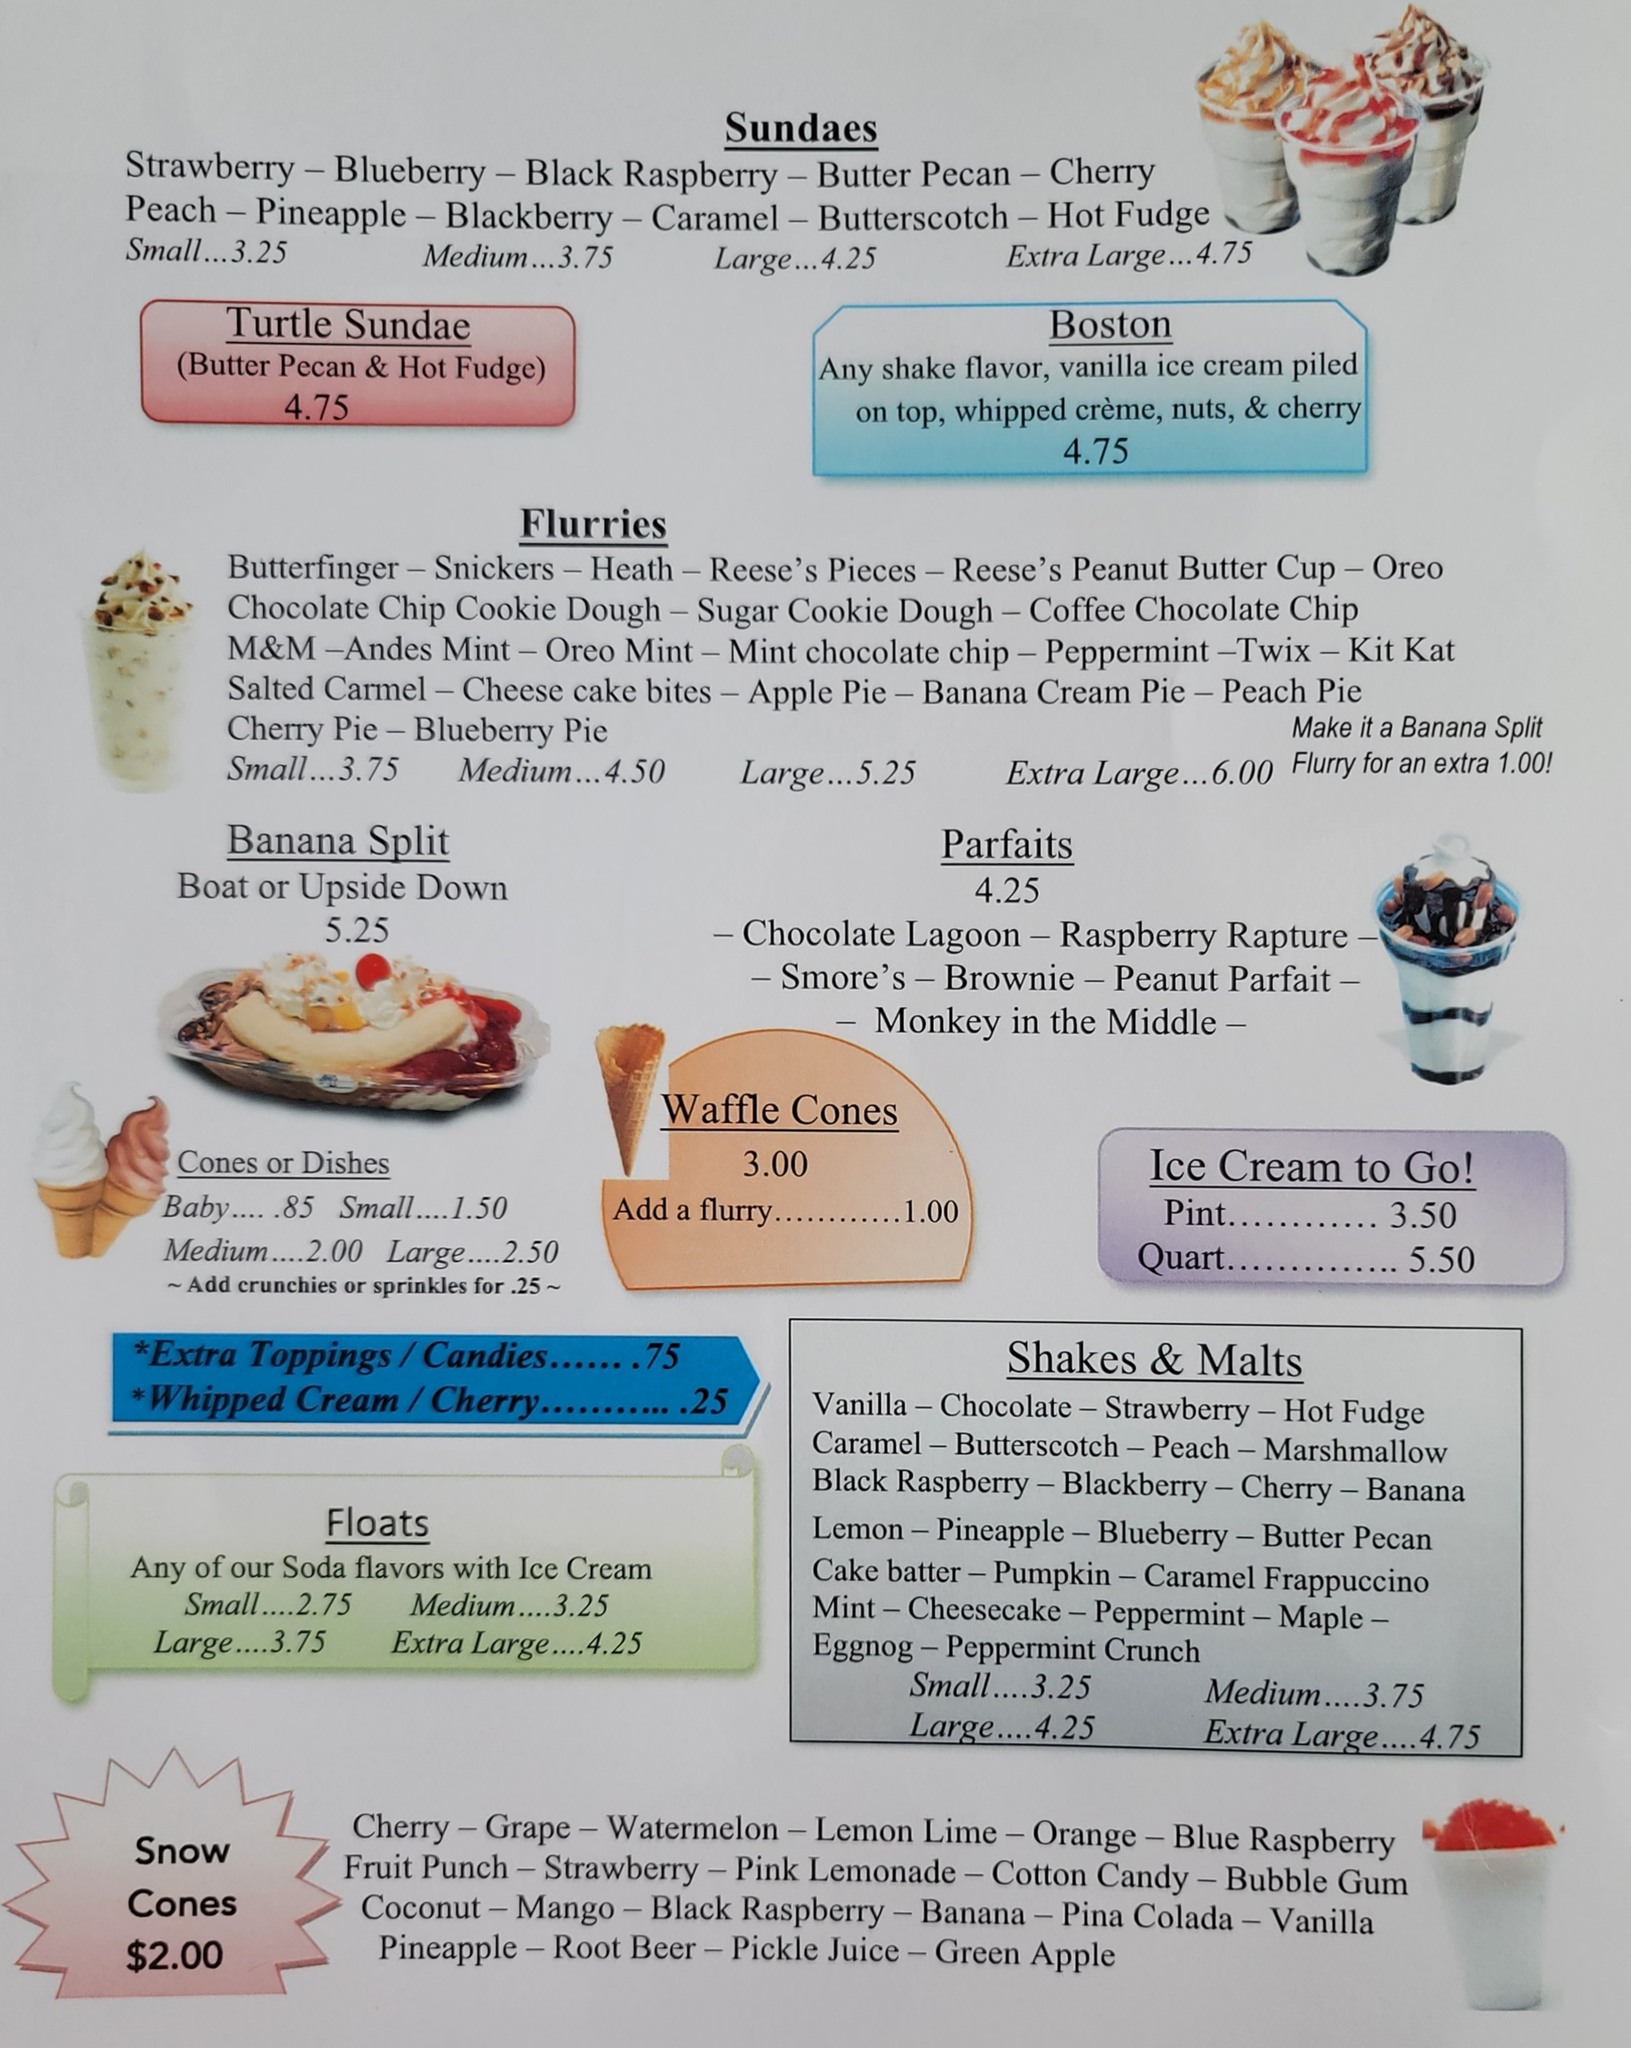 Sundaes
Strawberry – Blueberry – Black Raspberry – Butter Pecan – Cherry
Peach – Pineapple – Blackberry – Caramel – Butterscotch – Hot Fudge
Small...3.25 Medium...3.75 Large...4.25 Extra Large...4.75
Turtle Sundae
(Butter Pecan & Hot Fudge)
4.75
Boston
Any shake flavor, vanilla ice cream piled
on top, whipped crème, nuts, & cherry
4.75
Flurries
Butterfinger – Snickers – Heath – Reese's Pieces – Reese's Peanut Butter Cup – Oreo
Chocolate Chip Cookie Dough – Sugar Cookie Dough – Coffee Chocolate Chip
M&M –Andes Mint – Oreo Mint – Mint chocolate chip – Peppermint –Twix – Kit Kat
Salted Carmel – Cheese cake bites – Apple Pie – Banana Cream Pie – Peach Pie
Cherry Pie – Blueberry Pie
Small...3.75 Medium...4.50 Large...5.25 Extra Large...6.00
Make it a Banana Split
Flurry for an extra 1.00!
Banana Split
Boat or Upside Down
5.25
Parfaits
4.25
– Chocolate Lagoon – Raspberry Rapture –
– Smore's – Brownie – Peanut Parfait –
– Monkey in the Middle –
Cones or Dishes
Baby.... .85 Small....1.50
Medium....2.00 Large....2.50
~ Add crunchies or sprinkles for .25 ~
Waffle Cones
3.00
Add a flurry............1.00
Ice Cream to Go!
Pint............ 3.50
Quart.............. 5.50
*Extra Toppings / Candies...... .75
*Whipped Cream / Cherry........... .25
Floats
Any of our Soda flavors with Ice Cream
Small....2.75 Medium....3.25
Large....3.75 Extra Large....4.25
Shakes & Malts
Vanilla – Chocolate – Strawberry – Hot Fudge
Caramel – Butterscotch – Peach – Marshmallow
Black Raspberry – Blackberry – Cherry – Banana
Lemon – Pineapple – Blueberry – Butter Pecan
Cake batter – Pumpkin – Caramel Frappuccino
Mint – Cheesecake – Peppermint – Maple –
Eggnog – Peppermint Crunch
Small....3.25 Medium....3.75
Large....4.25 Extra Large....4.75
Snow
Cones
$2.00
Cherry – Grape – Watermelon – Lemon Lime – Orange – Blue Raspberry
Fruit Punch – Strawberry – Pink Lemonade – Cotton Candy – Bubble Gum
Coconut – Mango – Black Raspberry – Banana – Pina Colada – Vanilla
Pineapple – Root Beer – Pickle Juice – Green Apple